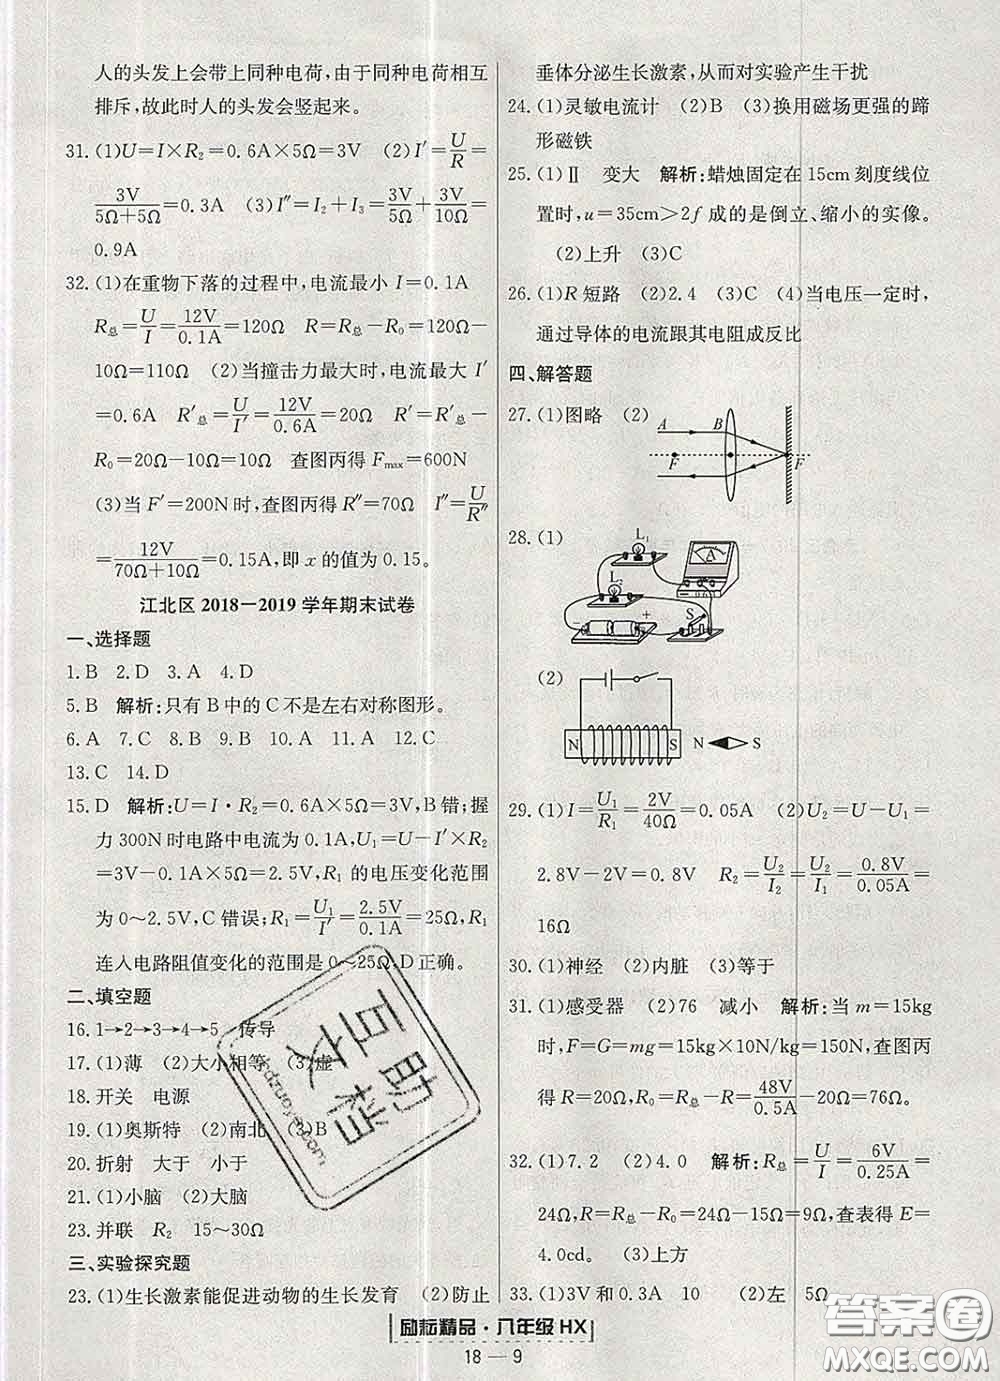 人的头发上会带上同种电荷,由于同种电荷相互
排斥,故此时人的头发会竖起来。
31. (1)U=I×R₂=0.6A×5Ω=3V (2)I′=U/R=
3V/(5Ω+5Ω)=0.3A (3)I″=I₂+I₃=3V/5Ω+3V/10Ω=
0.9A
32. (1)在重物下落的过程中,电流最小 I=0.1A
R总=U/I=12V/0.1A=120Ω R=R总−R₀=120Ω−
10Ω=110Ω (2)当撞击力最大时,电流最大 I′
=0.6A R′总=U/I′=12V/0.6A=20Ω R′=R′总−
R₀=20Ω−10Ω=10Ω 查图丙得 Fmax=600N
(3)当 F′=200N时,查图丙得 R″=70Ω I″=U/R″
=12V/(70Ω+10Ω)=0.15A,即 x 的值为 0.15。
江北区 2018—2019 学年期末试卷
一、选择题
1. B 2. D 3. A 4. D
5. B 解析:只有 B 中的 C 不是左右对称图形。
6. A 7. C 8. B 9. B 10. A 11. A 12. C
13. C 14. D
15. D 解析:U=I·R₂=0.6A×5Ω=3V,B错;握
力 300N 时电路中电流为 0.1A,U₁=U−I′×R₂
=3V−0.1A×5Ω=2.5V,R₁ 的电压变化范围
为 0~2.5V,C 错误;R₁=U₁/I′=2.5V/0.1A=25Ω,R₁
连入电路阻值变化的范围是 0~25Ω,D 正确。
二、填空题
16. 1→2→3→4→5 传导
17. (1)薄 (2)大小相等 (3)虚
18. 开关 电源
19. (1)奥斯特 (2)南北 (3)B
20. 折射 大于 小于
21. (1)小脑 (2)大脑
23. 并联 R₂ 15~30Ω
三、实验探究题
23. (1)生长激素能促进动物的生长发育 (2)防止
垂体分泌生长激素,从而对实验产生干扰
24. (1)灵敏电流计 (2)B (3)换用磁场更强的蹄
形磁铁
25. (1)Ⅱ 变大 解析:蜡烛固定在 15cm 刻度线位
置时,u=35cm>2f 成的是倒立、缩小的实像。
(2)上升 (3)C
26. (1)R 短路 (2)2.4 (3)C (4)当电压一定时,
通过导体的电流跟其电阻成反比
四、解答题
27. (1)图略 (2)
A B
F F
28. (1)
L₁
A
L₂
S
− +
(2)
N S N S
29. (1)I=U₁/R₁=2V/40Ω=0.05A (2)U₂=U−U₁=
2.8V−2V=0.8V R₂=U₂/I₂=U₂/I₁=0.8V/0.05A=
16Ω
30. (1)神经 (2)内脏 (3)等于
31. (1)感受器 (2)76 减小 解析:当 m=15kg
时,F=G=mg=15kg×10N/kg=150N,查图丙
得 R=20Ω,R₀=R总−R=48V/0.5A−20Ω=76Ω。
32. (1)7.2 (2)4.0 解析:R总=U/I=6V/0.25A=
24Ω,R=R总−R₀=24Ω−15Ω=9Ω,查表得 E=
4.0cd。 (3)上方
33. (1)3V和0.3A 10 (2)左 5Ω
励耘精品·八年级 HX
18—9
互助文档
答案圈
MXQE.COM